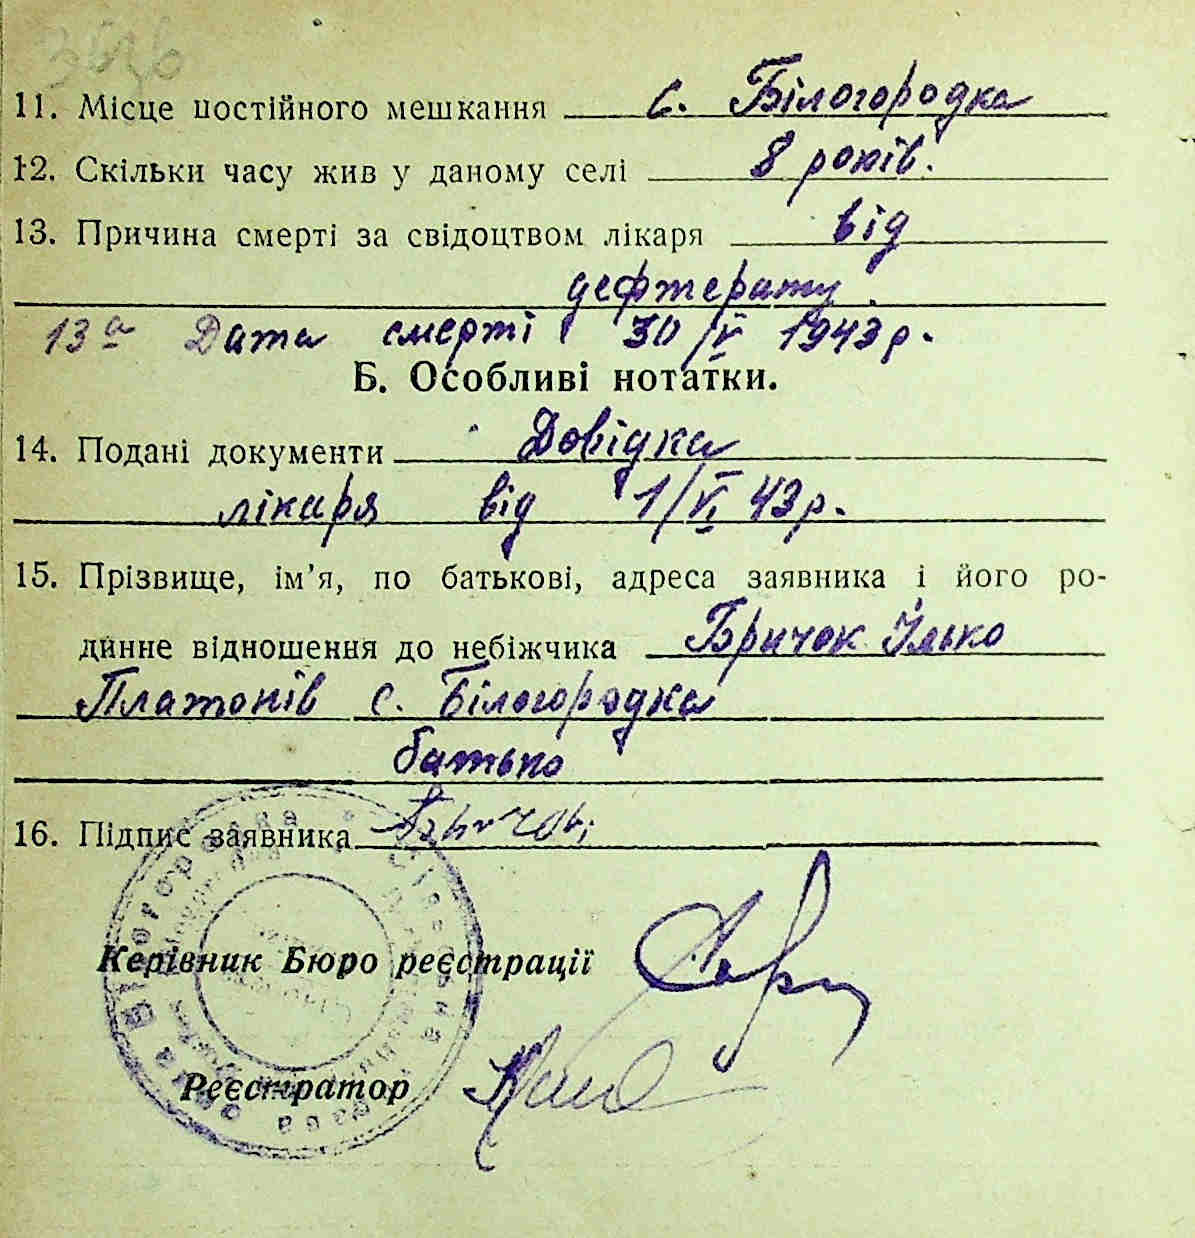 11. Місце постійного мешкання с. Білогородка
12. Скільки часу жив у даному селі 8 років.
13. Причина смерті за свідоцтвом лікаря від
дефтерату.
13а Дата смерті 30/V 1943 р.
Б. Особливі нотатки.
14. Подані документи Довідка
лікаря від 1/VI 43 р.
15. Прізвище, ім'я, по батькові, адреса заявника і його ро-
динне відношення до небіжчика Бричок Ілько
Платонів с. Білогородка
батько
16. Підпис заявника
Керівник Бюро реєстрації
Реєстратор